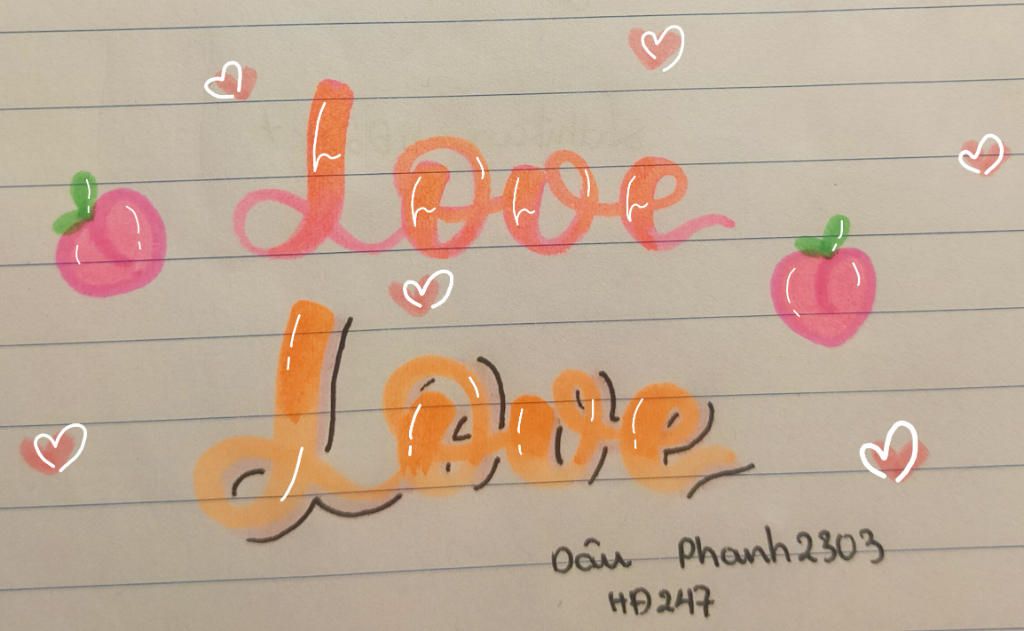 Love
Love
Dâu Phanh2303
HĐ247